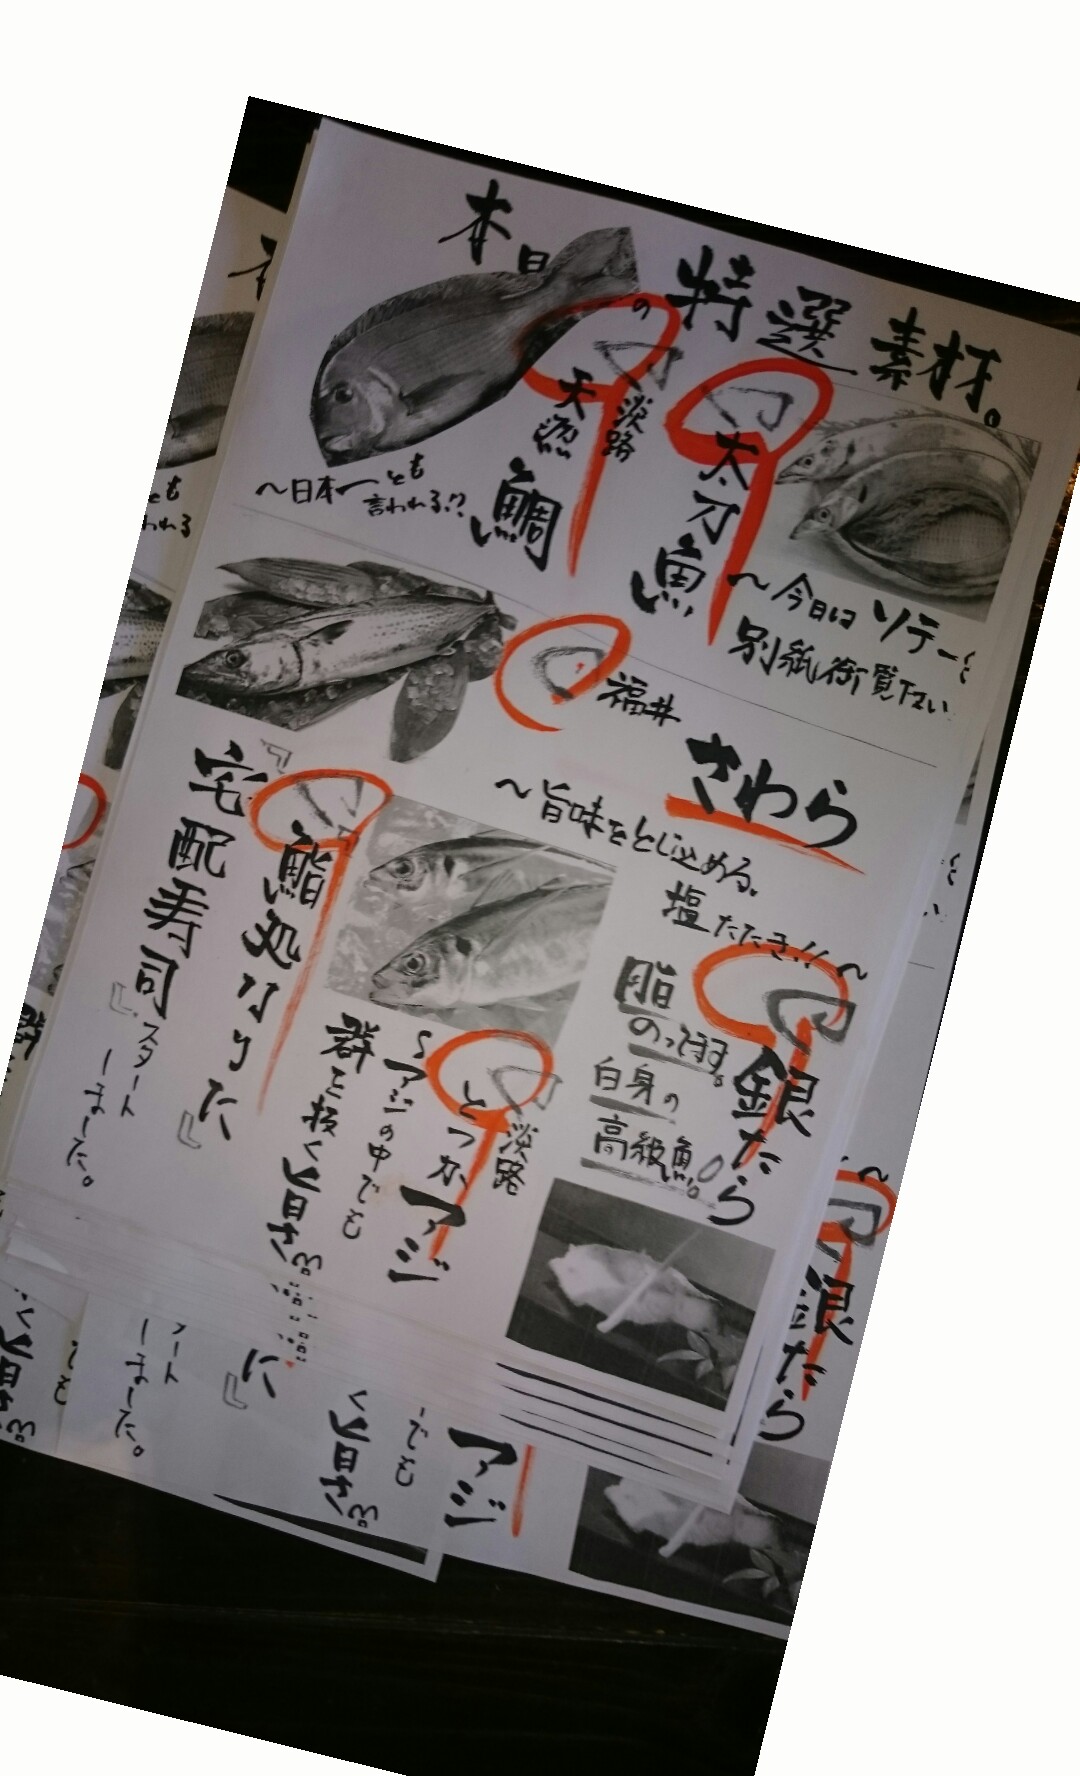 本日の特選素材。
太刀魚
〜今日はソテー
別紙御覧下さい
淡路
天然
鯛
〜日本一とも
言われる!?
福井
さわら
〜旨味をとじ込める。
塩たたき!!〜
銀だら
脂
のってます。
白身の
高級魚。
淡路
とつかアジ
〜アジの中でも
群を抜く旨さ
『鮨処なりたに』
『宅配寿司』スタート
しました。
とも
われる
群
銀だら
アジ
でも
く旨さ
に』
ート
しました。
でも
く旨さ